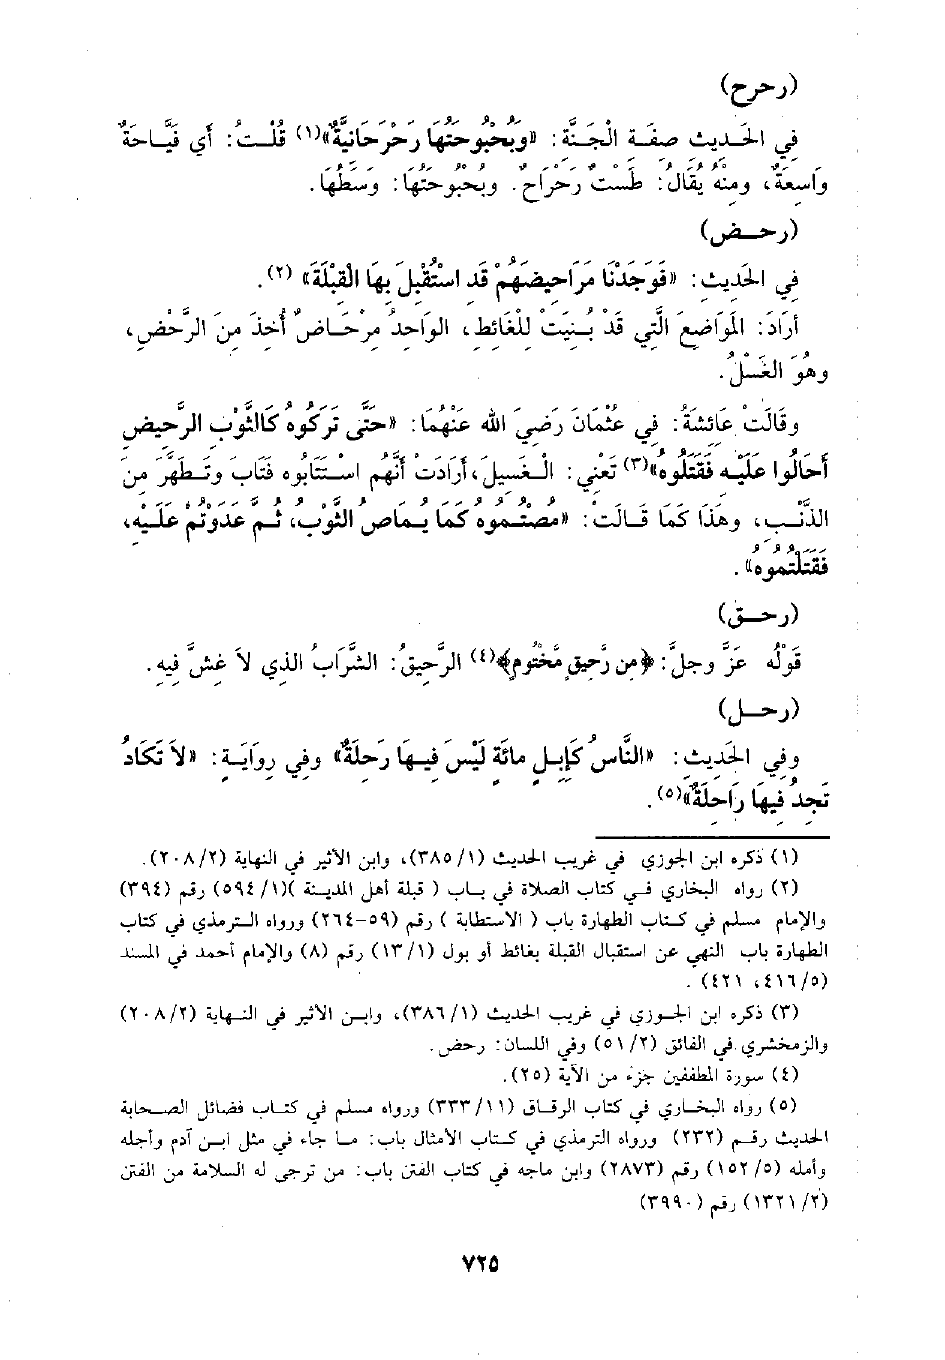 (رحرح)
في الحَديث صفَة الْجَنَّة: «وبَحْبُوحتُهَا رَحْرَحَانيَّةٌ»(١) قُلْتُ: أَي فَيَّاحَةٌ
وَاسعَةٌ، ومنْهُ يُقَالُ: طَسْتٌ رَحْرَاحٌ. وبُحْبُوحَتُهَا: وَسَطُهَا.
(رحض)
في الحَديث: «فَوَجَدْنَا مَرَاحيضَهُمْ قَد اسْتُقْبلَ بهَا الْقبْلَةَ» (٢).
أَرَادَ: الْمَوَاضعَ الَّتي قَدْ بُنيَتْ للْغَائط، الوَاحدُ مرْحَاضٌ أُخذَ منَ الرَّحْض،
وهُوَ الغَسْلُ.
وقَالَتْ عَائشَةُ: في عُثْمَانَ رَضيَ الله عَنْهُمَا: «حَتَّى تَرَكُوهُ كَالثَّوْب الرَّحيض
أَحَالُوا عَلَيْه فَقَتَلُوهُ»(٣) تَعْني: الْغَسيلَ، أَرَادَتْ أَنَّهُم اسْتَتَابُوه فَتَابَ وتَطَهَّرَ منَ
الذَّنْب، وهَذَا كَمَا قَالَتْ: «مُصْتُمُوه كَمَا يُمَاصُ الثَّوْبُ، ثُمَّ عَدَوْتُمْ عَلَيْه،
فَقَتَلْتُمُوهُ».
(رحق)
قَوْلُهُ عَزَّ وجلَّ: ﴿من رَّحيقٍ مَّخْتُومٍ﴾(٤) الرَّحيقُ: الشَّرَابُ الذي لاَ غشَّ فيه.
(رحل)
وفي الحَديث: «النَّاسُ كَإبلٍ مائَةٍ لَيْسَ فيهَا رَحلَةٌ» وفي روايَة: «لاَ تَكَادُ
تَجدُ فيهَا رَاحلَةٌ»(٥).
(١) ذكره ابن الجوزي في غريب الحديث (١/ ٣٨٥)، وابن الأثير في النهاية (٢/ ٢٠٨).
(٢) رواه البخاري في كتاب الصلاة في باب ( قبلة أهل المدينة )(١/ ٥٩٤) رقم (٣٩٤)
والإمام مسلم في كتاب الطهارة باب ( الاستطابة ) رقم (٥٩-٢٦٤) ورواه الترمذي في كتاب
الطهارة باب النهي عن استقبال القبلة بغائط أو بول (١/ ١٣) رقم (٨) والإمام أحمد في المسند
(٥/ ٤١٦، ٤٢١) .
(٣) ذكره ابن الجوزي في غريب الحديث (١/ ٣٨٦)، وابن الأثير في النهاية (٢/ ٢٠٨)
والزمخشري في الفائق (٢/ ٥١) وفي اللسان: رحض.
(٤) سورة المطففين جزء من الآية (٢٥).
(٥) رواه البخاري في كتاب الرقاق (١١/ ٣٣٣) ورواه مسلم في كتاب فضائل الصحابة
الحديث رقم (٢٣٢) ورواه الترمذي في كتاب الأمثال باب: ما جاء في مثل ابن آدم وأجله
وأمله (٥/ ١٥٢) رقم (٢٨٧٣) وابن ماجه في كتاب الفتن باب: من ترجى له السلامة من الفتن
(٢/ ١٣٢١) رقم (٣٩٩٠)
٧٢٥